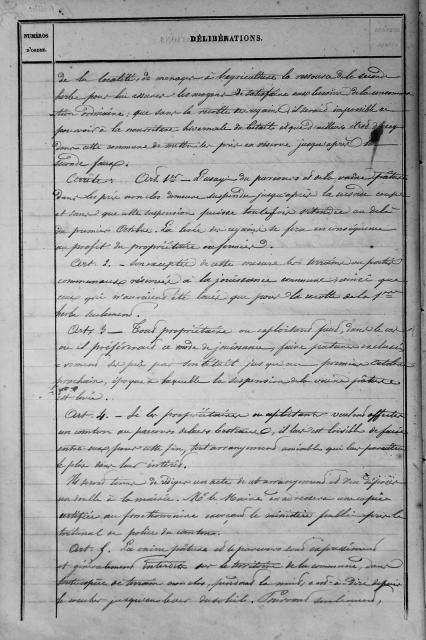 NUMÉROS
D'ORDRE.
DÉLIBÉRATIONS.
de la localité, de ménager à l'agriculture la ressource de la seconde
herbe pour lui assurer les moyens de satisfaire aux besoins de la consomma
tion ordinaire; que sans la récolte de regain, il serait impossible de
pourvoir à la nourriture hivernale du bétail et que d'ailleurs il est d'usage
dans cette commune de mettre les prés en réserve jusqu'après la
seconde faux.
Arrête: Art. 1er — L'usage du parcours et de la vaine pâture
dans les prés non clos demeure suspendu jusqu'après la seconde coupe
et sans que cette suspension puisse toutefois s'étendre au delà
du premier Octobre. La levée de regains se fera en conséquence
au profit des propriétaires ou fermiers.
Art. 2. — Sont exceptés de cette mesure les terrains ou portés
communaux réservés à la jouissance commune; ainsi que
ceux qui n'auraient été loués que pour la récolte de la 1ère
herbe seulement.
Art. 3 — Tout propriétaire ou exploitant peut, dans le cas
où il préférerait ce mode de jouissance, faire pâturer exclusi
vement ses prés par son bétail jusqu'au premier Octobre
prochain, époque à laquelle la suspension de la vaine pâture
est levée.
Art. 4. — Si les propriétaires ou exploitants veulent affecter
un canton au parcours de leurs bestiaux, il leur est loisible de faire
entre eux, pour cette fin, tout arrangement amiable qui leur paraîtra
le plus dans leur intérêt.
Ils seront tenus de rédiger un acte de cet arrangement et d'en déposer
un double à la mairie. Mr le Maire en adressera une copie
certifiée au fonctionnaire exerçant le ministère public près le
tribunal de police du canton.
Art. 5. La vaine pâture et le parcours sont expressément
et généralement interdits sur le territoire de la commune, dans
toute espèce de terrain non clos, pendant la nuit, c'est-à-dire depuis
le coucher jusqu'au lever du soleil. Pourront seulement,